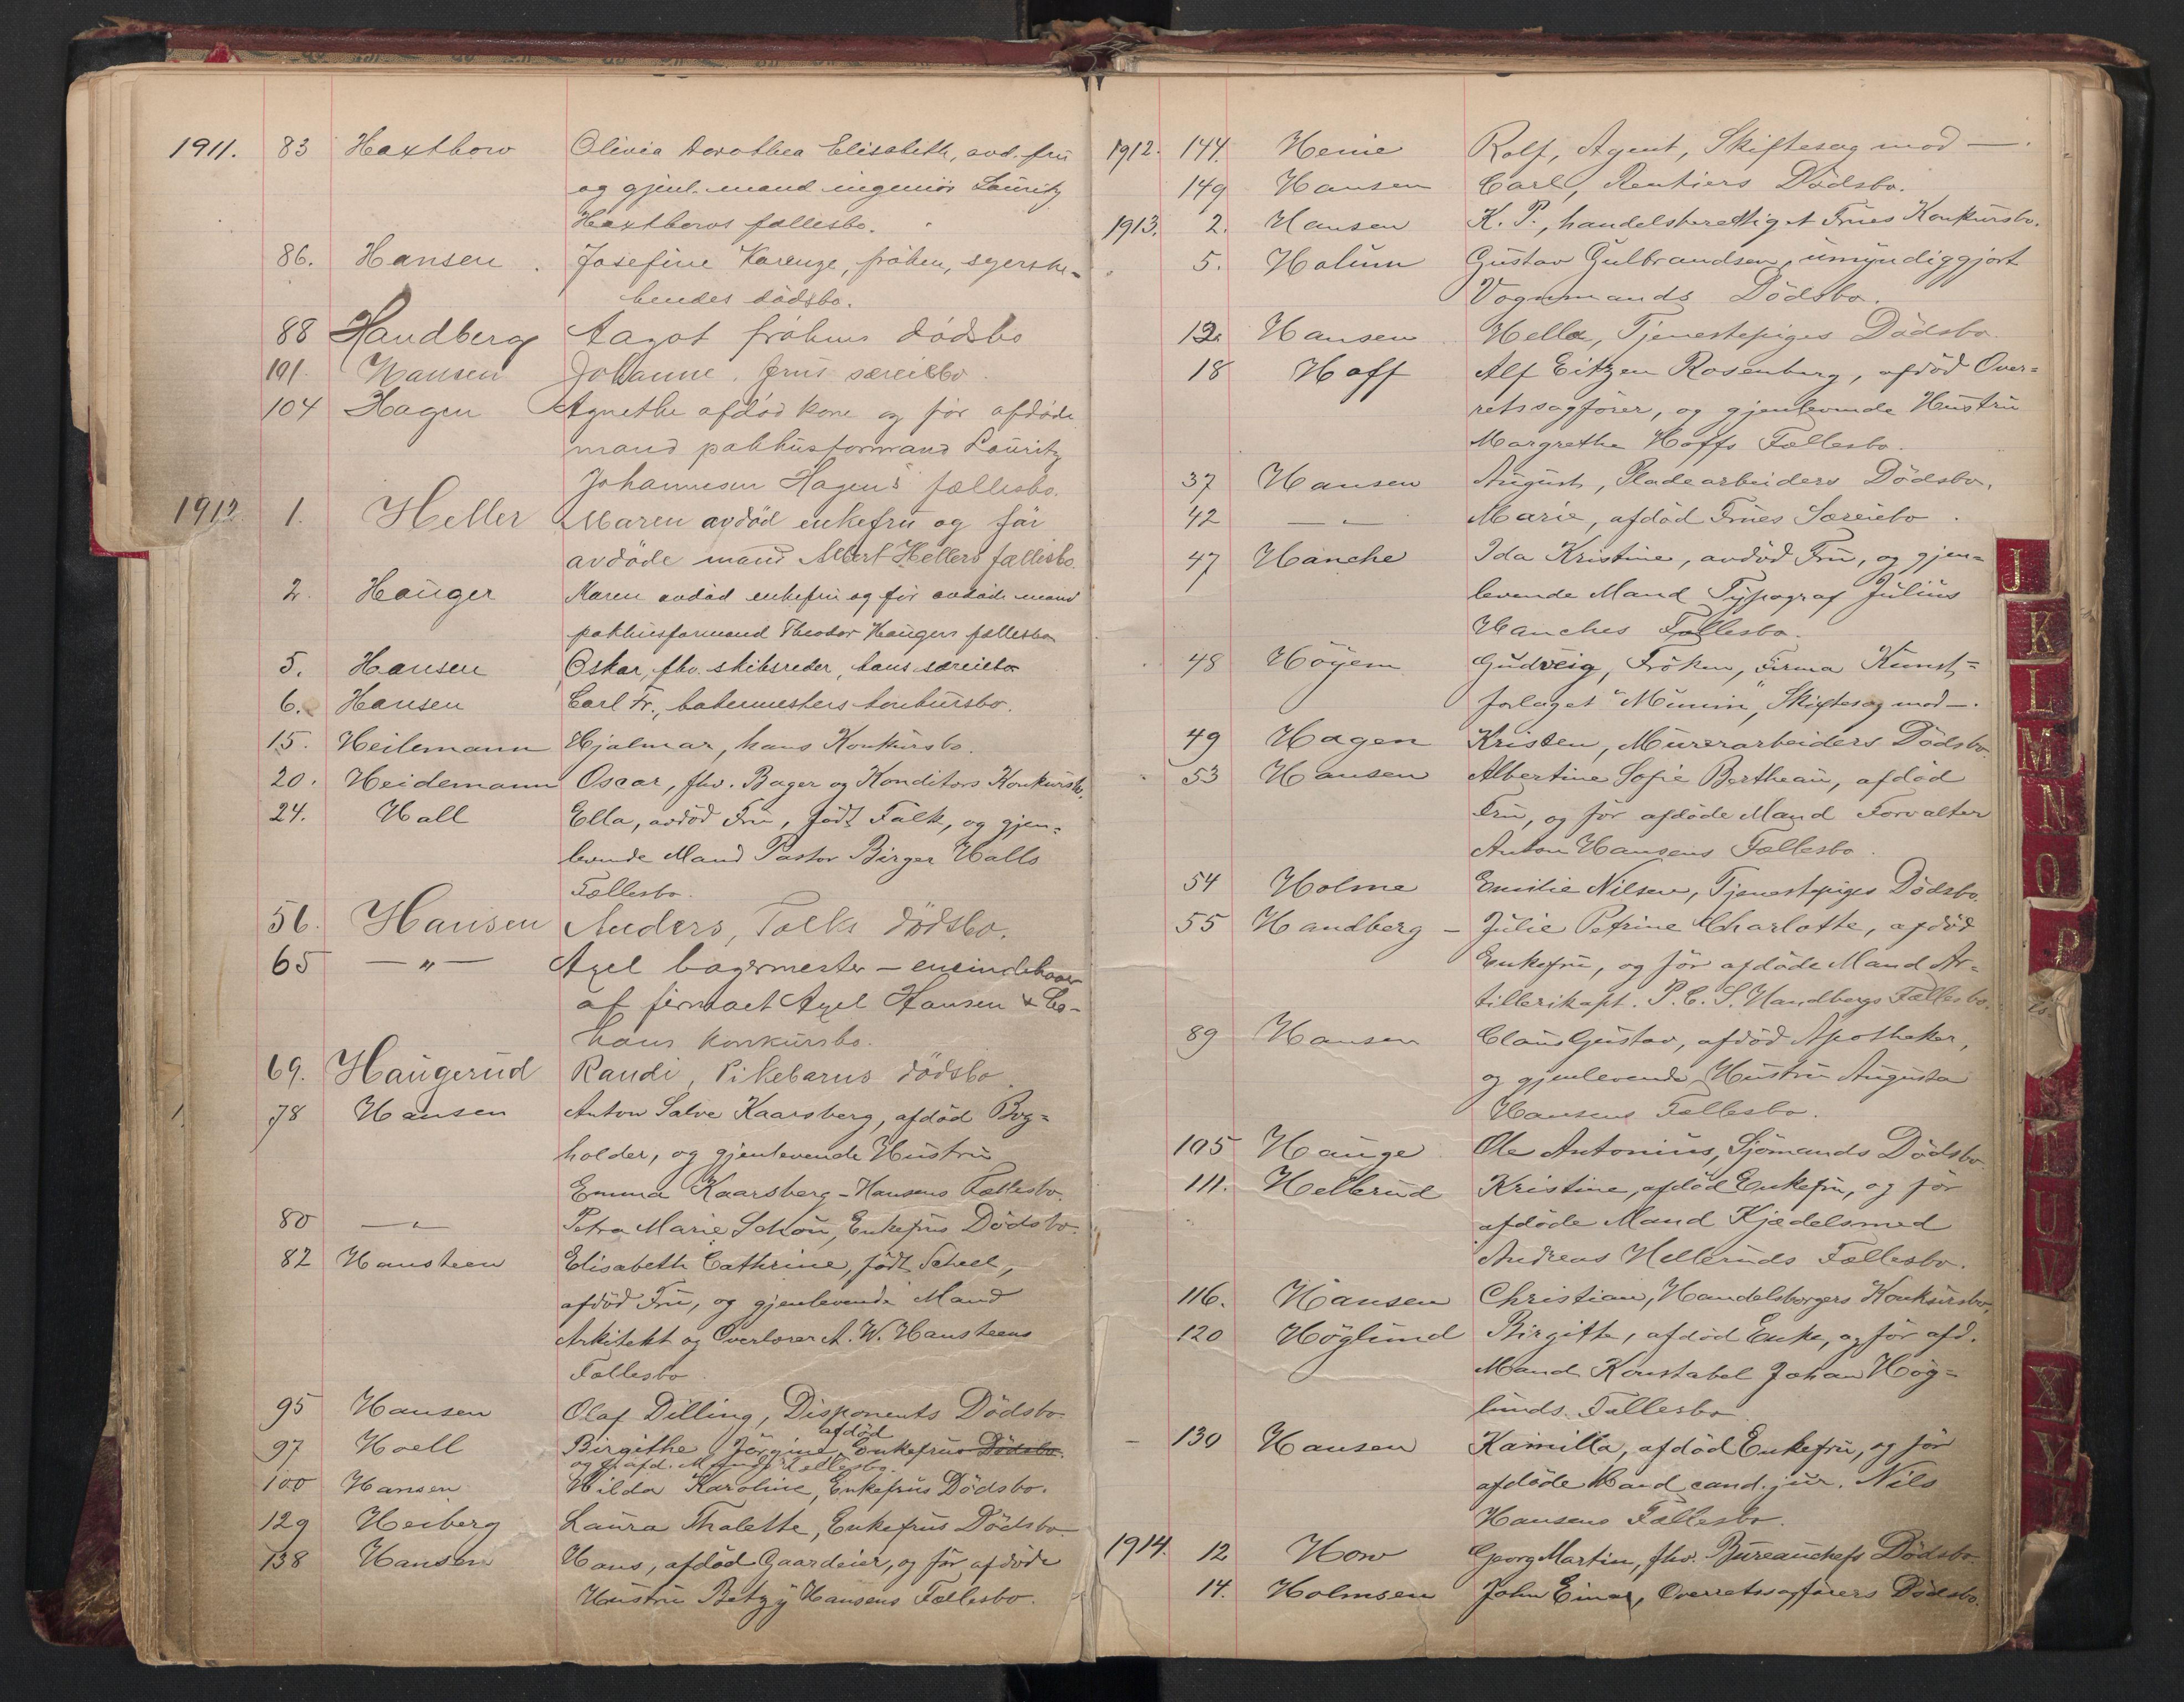 1911. 83 Haxthow Olivia Dorothea Elisabeth, avd. fru
og gjenl. mand ingeniör Lauritz
Haxthows fællesbo.
86. Hansen Josefine Karenze, fröken, syerske,
hendes dödsbo.
88 Handberg Aagot frökens dödsbo
101. Hansen Johanne, frus særeiebo.
104 Hagen Agnethe afdöd kone og för afdöde
mand pakhusformand Lauritz
Johannesen Hagens fællesbo.
1912 1. Heller Maren avdöd enkefru og för
avdöde mand Albert Hellers fællesbo.
2. Hauger Karen avdöd enkefru og för avdöde mand
pakhusformand Theodor Haugers fællesbo
5. Hansen Oskar, fhv. skibsreder, hans særeiebo
6. Hansen Carl Fr., bakermesters konkursbo.
15. Heilemann Hjalmar, hans Konkursbo.
20. Heidemann Oscar, fhv. Bager og Konditors Konkursbo.
24. Hall Ella, avdöd Fru, födt Falk, og gjen=
levende Mand Pastor Birger Halls
Fællesbo.
56. Hansen Anders, Tolks dödsbo.
65 —"— Axel bagermester – eneindehaver
af firmaet Axel Hansen & Co –
hans konkursbo.
69. Haugerud Randi, Pikebarns dödsbo.
78 Hansen Anton Salve Kaarsberg, afdöd Bog=
holder, og gjenlevende Hustru
Emma Kaarsberg-Hansens Fællesbo.
80 —"— Petra Marie Schou, Enkefrus Dödsbo.
82 Hansteen Elisabeth Cathrine, födt Scheel,
afdöd Fru, og gjenlevende Mand
Arkitekt og Overlærer A. W. Hansteens
Fællesbo.
95 Hansen Olaf Dilling, Disponents Dödsbo.
afdöd
97 Hoell Birgithe Jörgine, Enkefrus Dödsbo.
og f. afd. Mands Fællesbo.
100 Hansen Hilda Karoline, Enkefrus Dödsbo.
129 Heiberg Laura Thalette, Enkefrus Dödsbo
138 Hansen Hans, afdöd Gaardeier, og för afdöde
Hustru Betzy Hansens Fællesbo.
1912. 144. Heine Rolf, Agent, Skiftesag mod —.
149 Hansen Carl, Rentiers Dödsbo.
1913. 2. Hansen K. P., handelsberettiget Frues Konkursbo.
5. Holum Gustav Gulbrandsen, umyndiggjort
Vognmands Dödsbo.
12. Hansen Hella, Tjenestepiges Dödsbo
18 Hoff Alf Eitzen Rosenberg, afdöd Over=
retssagförer, og gjenlevende Hustru
Margrethe Hoffs Fællesbo.
37 Hansen August, Pladearbeiders Dödsbo.
42 —"— Marie, afdöd Frues Særeiebo.
47 Hanche Ida Kristine, avdöd Fru, og gjen=
levende Mand Typograf Julius
Hanches Fællesbo.
48 Höyem Gudveig, Fröken, Firma Kunst=
forlaget "Mimir", Skiftesag mod —.
49 Hagen Kristen, Murerarbeiders Dödsbo
53 Hansen Albertine Sofie Bertheau, afdöd
Fru, og för afdöde Mand Forvalter
Anton Hansens Fællesbo.
54 Holme Emilie Nilsen, Tjenestepiges Dödsbo.
55 Handberg – Julie Petrine Charlotte, afdöd
Enkefru, og för afdöde Mand Ar=
tillerikapt. P. C. S. Handbergs Fællesbo.
89 Hansen Claus Gustav, afdöd Apotheker,
og gjenlevende Hustru Augusta
Hansens Fællesbo.
105 Hauge Ole Antonius, Sjömands Dödsbo.
111. Hellerud Kristine, afdöd Enkefru, og för
afdöde Mand Kjedelsmed
Andreas Helleruds Fællesbo.
116. Hansen Christian, Handelsborgers Konkursbo.
120 Höglund Birgitte, afdöd Enke, og för afd.
Mand Konstabel Johan Hög=
lunds Fællesbo
130 Hansen Kamilla, afdöd Enkefru, og för
afdöde Mand cand. jur. Nils
Hansens Fællesbo.
1914. 12 How Georg Martin, fhv. Bureauchefs Dödsbo
14. Holmsen John Einar, Overretssagförers Dödsbo.
J
K
L
M
N
O
P
S
T
U
V
X
Y